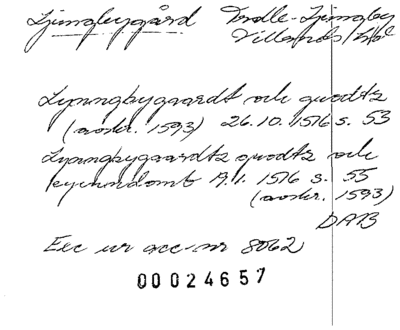 Ljungbygård Trolle-Ljungby
Villands hd
Lynngbygaardt och guodtz
(avskr. 1593) 26.10. 1516 s. 53
Lynngbygaardtz guodtz och
eyenndomt 19.1. 1516 s. 55
(avskr. 1593)
DAB
Exc ur acc-nr 8062
00024657